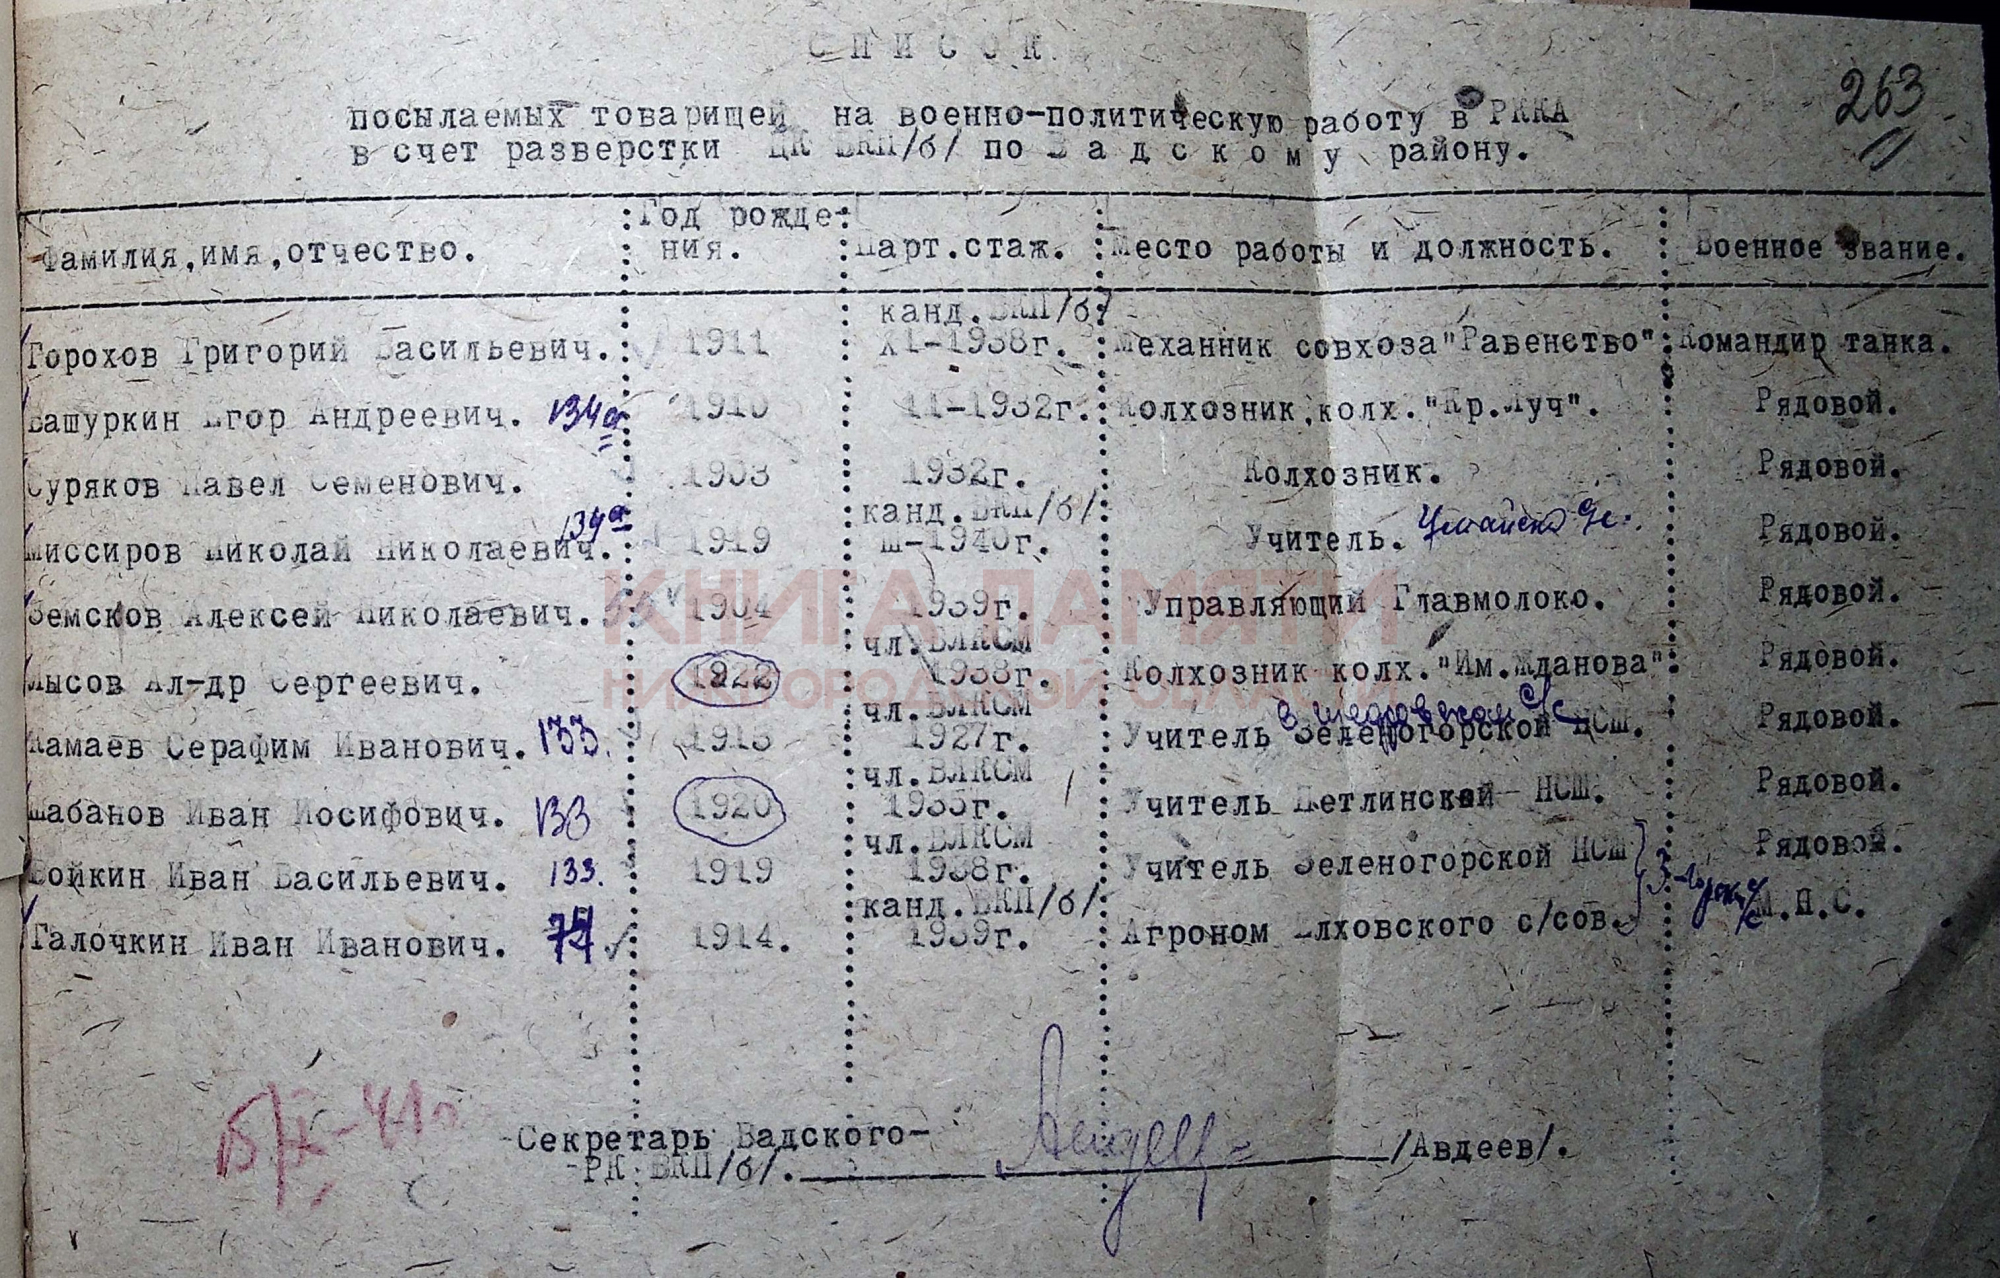 СПИСОК
263
посылаемых товарищей на военно-политическую работу в РККА
в счет разверстки ЦК ВКП/б/ по Вадскому району.
Фамилия,имя,отчество. Год рожде-ния. Парт.стаж. Место работы и должность. Военное звание.
канд.ВКП/б/
Горохов Григорий Васильевич. 1911 XI-1938г. Механник совхоза"Равенство" Командир танка.
Вашуркин Егор Андреевич. 134а 1910 11-1932г. Колхозник,колх."Кр.Луч". Рядовой.
Суряков Павел Семенович. 1903 1932г. Колхозник. Рядовой.
канд.ВКП/б/
Миссиров Николай Николаевич. 134а 1919 Ш-1940г. Учитель. Рядовой.
Земсков Алексей Николаевич. 1904 1939г. Управляющий Главмолоко. Рядовой.
чл.ВЛКСМ
Лысов Ал-др Сергеевич. 1922 1938г. Колхозник колх."Им.Жданова" Рядовой.
чл.ВЛКСМ
Камаев Серафим Иванович. 133. 1915 1927г. Учитель Зеленогорской НСШ. Рядовой.
чл.ВЛКСМ
Шабанов Иван Иосифович. 133 1920 1935г. Учитель Петлинской НСШ. Рядовой.
чл.ВЛКСМ
Бойкин Иван Васильевич. 133. 1919 1938г. Учитель Зеленогорской НСШ Рядовой.
канд.ВКП/б/
Галочкин Иван Иванович. 74 1914. 1939г. Агроном Елховского с/сов. М.П.С.
КНИГА ПАМЯТИ
НИЖЕГОРОДСКОЙ ОБЛАСТИ
Секретарь Вадского-
РК ВКП/б/. /Авдеев/.